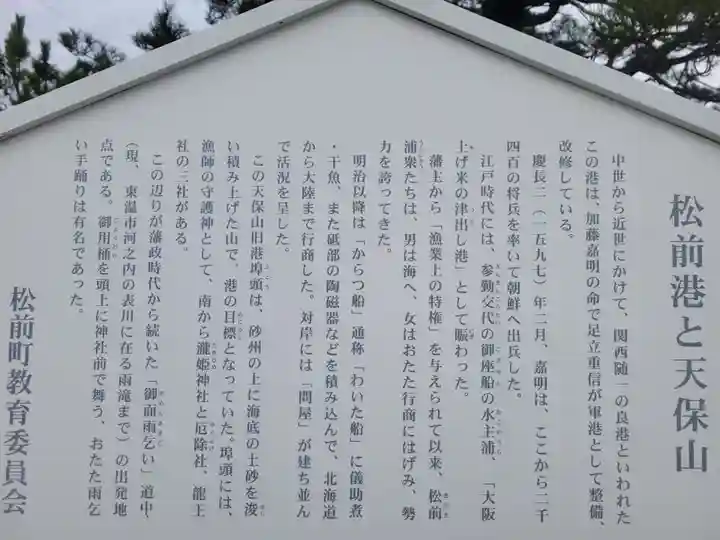 松前港と天保山
中世から近世にかけて、関西随一の良港といわれた
この港は、加藤嘉明の命で足立重信が軍港として整備、
改修している。
慶長二（一五九七）年二月、嘉明は、ここから二千
四百の将兵を率いて朝鮮へ出兵した。
江戸時代には、参勤交代の御座船の水主浦、「大阪
上げ米の津出し港」として賑わった。
藩主から「漁業上の特権」を与えられて以来、松前
浦衆たちは、男は海へ、女はおたた行商にはげみ、勢
力を誇ってきた。
明治以降は「からつ船」通称「わいた船」に儀助煮
・干魚、また砥部の陶磁器などを積み込んで、北海道
から大陸まで行商した。対岸には「問屋」が建ち並ん
で活況を呈した。
この天保山旧港埠頭は、砂州の上に海底の土砂を浚
い積み上げた山で、港の目標となっていた。埠頭には、
漁師の守護神として、南から瀧姫神社と厄除社、龍王
社の三社がある。
この辺りが藩政時代から続いた「御面雨乞い」道中
（現、東温市河之内の表川に在る雨滝まで）の出発地
点である。御用桶を頭上に神社前で舞う、おたた雨乞
い手踊りは有名であった。
松前町教育委員会